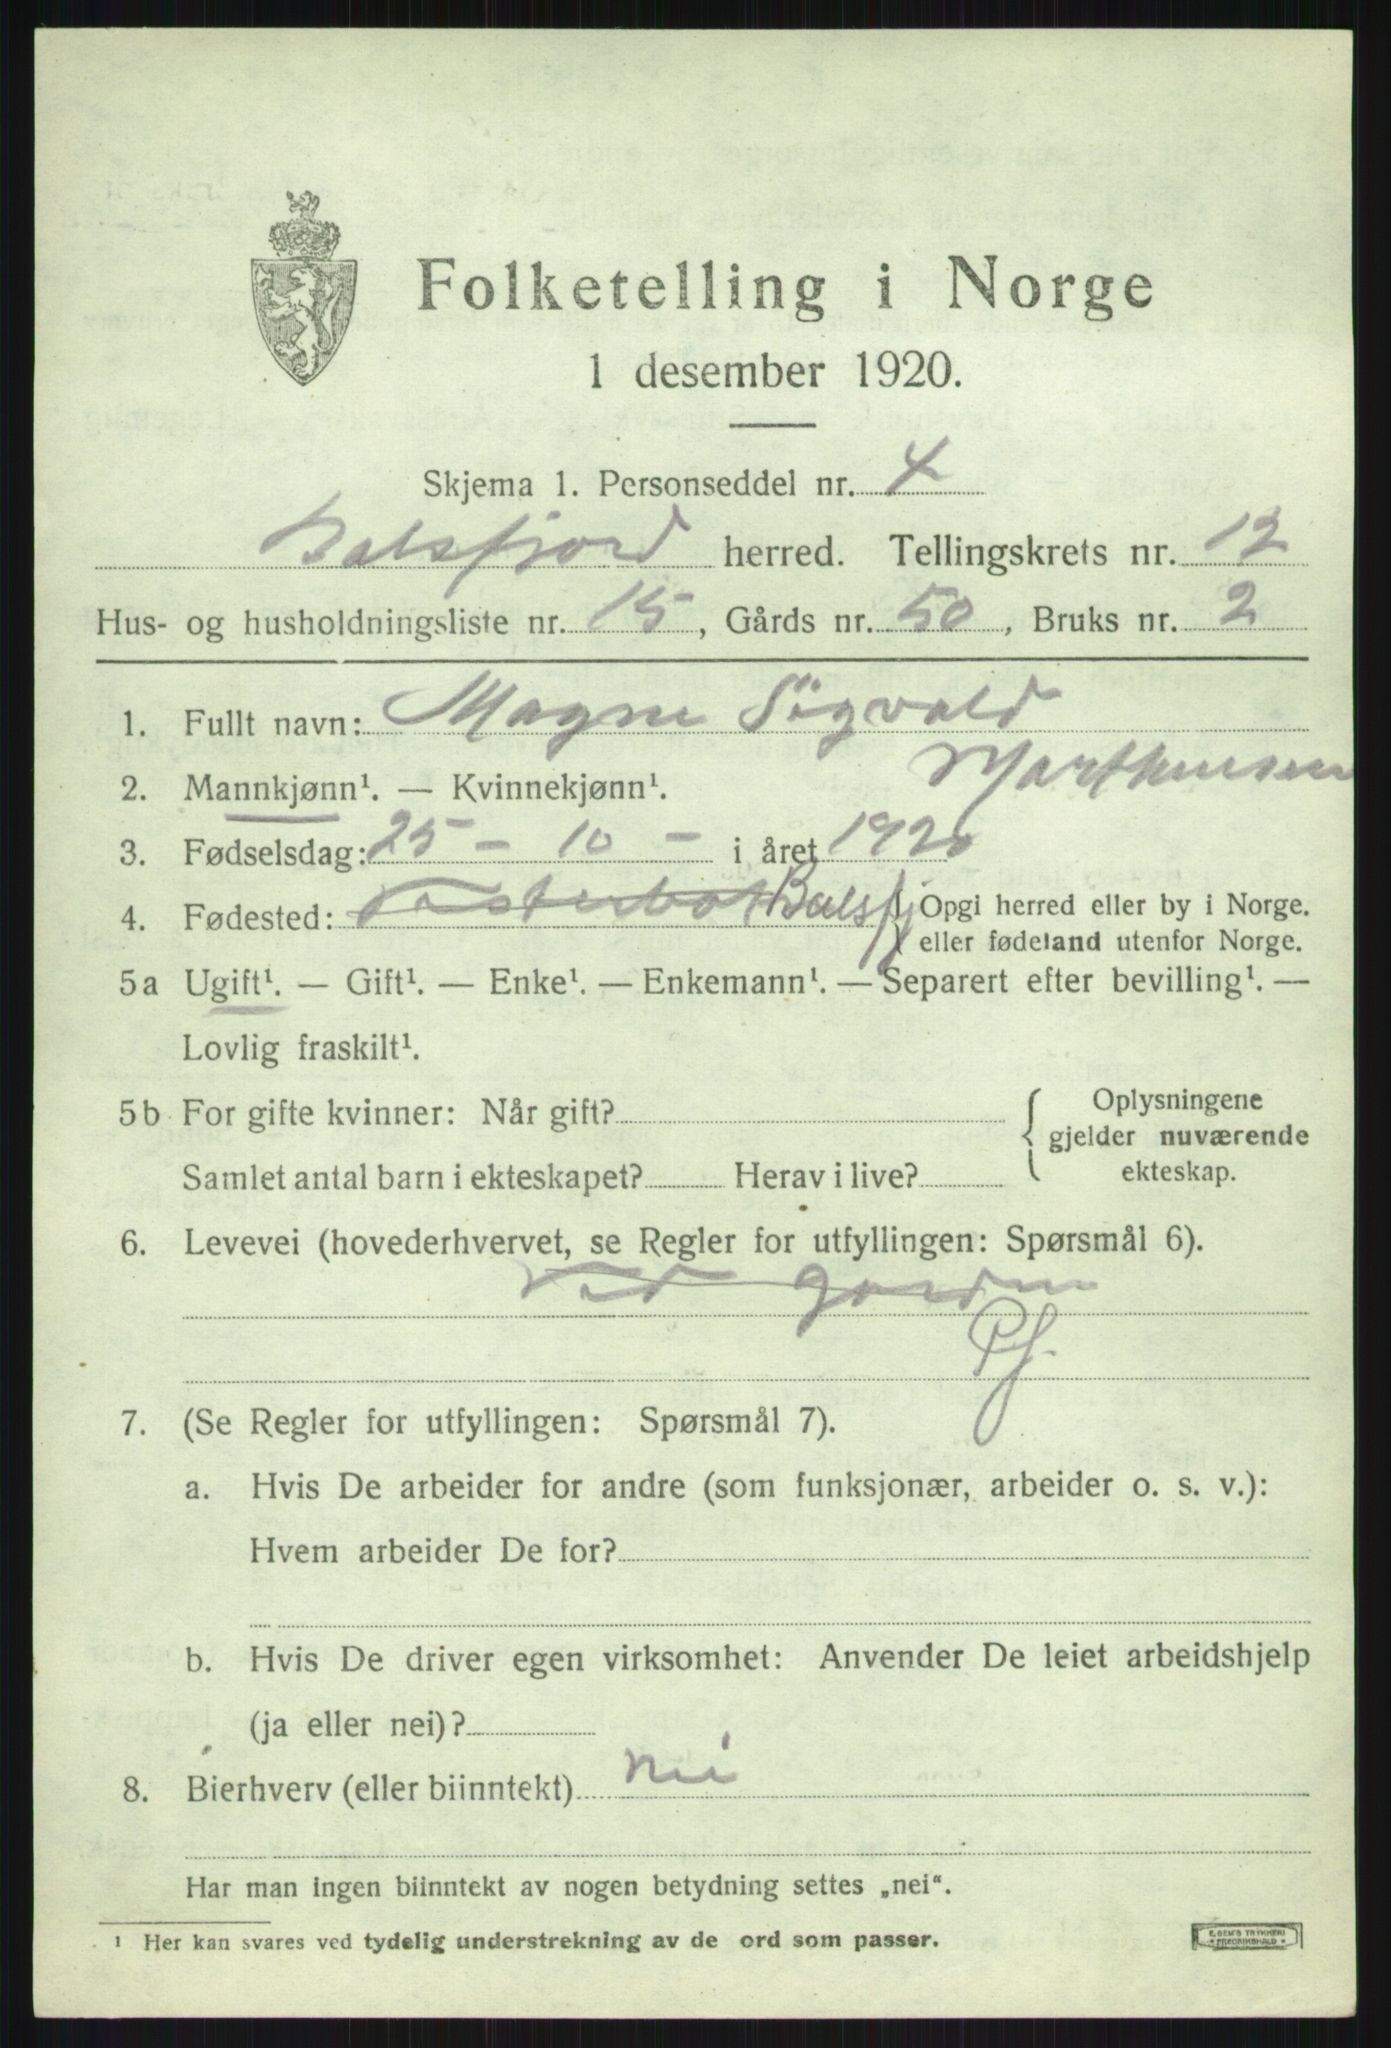 Folketelling i Norge
1 desember 1920.
Skjema 1. Personseddel nr. 4
Balsfjord herred. Tellingskrets nr. 12
Hus- og husholdningsliste nr. 15, Gårds nr. 50, Bruks nr. 2
1. Fullt navn: Magne Sigvald
Marthinsen
2. Mannkjønn¹. — Kvinnekjønn¹.
3. Fødselsdag: 25 - 10 - i året 1920
4. Fødested: Balsfj { Opgi herred eller by i Norge.
eller fødeland utenfor Norge.
5a Ugift¹. — Gift¹. — Enke¹. — Enkemann¹. — Separert efter bevilling¹. —
Lovlig fraskilt¹.
5b For gifte kvinner: Når gift? { Oplysningene
gjelder nuværende
ekteskap.
Samlet antal barn i ekteskapet? Herav i live?
6. Levevei (hovederhvervet, se Regler for utfyllingen: Spørsmål 6).
Ved gorden
Pf.
7. (Se Regler for utfyllingen: Spørsmål 7).
a. Hvis De arbeider for andre (som funksjonær, arbeider o. s. v.):
Hvem arbeider De for?
b. Hvis De driver egen virksomhet: Anvender De leiet arbeidshjelp
(ja eller nei)?
8. Bierhverv (eller biinntekt) nei
Har man ingen biinntekt av nogen betydning settes „nei“.
¹ Her kan svares ved tydelig understrekning av de ord som passer.
E. SEM'S TRYKKERI
* FREDRIKSHALD *